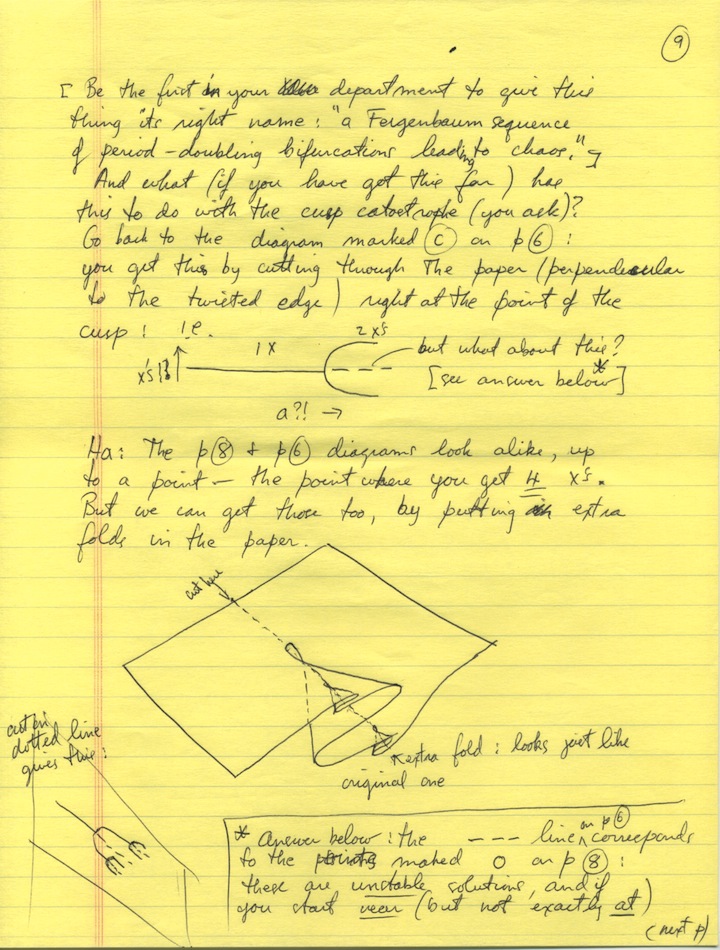 9
[ Be the first in your department to give this
thing "its right name: "a Feigenbaum sequence
of period-doubling bifurcations leading to chaos." ]
And what (if you have got this far) has
this to do with the cusp catastrophe (you ask)?
Go back to the diagram marked C on p 6 :
you get this by cutting through the paper (perpendicular
to the twisted edge) right at the point of the
cusp : i.e.
1 x
2 x's
but what about this?
[see answer below*]
x's
a?! →
Ha: The p 8 & p 6 diagrams look alike, up
to a point — the point where you get 4 x's.
But we can get those too, by putting in extra
folds in the paper.
cut here
cut on
dotted line
gives this:
extra fold : looks just like
original one
* Answer below : the --- line on p 6 corresponds
to the points marked o on p 8 :
these are unstable solutions, and if
you start near (but not exactly at)
(next p)